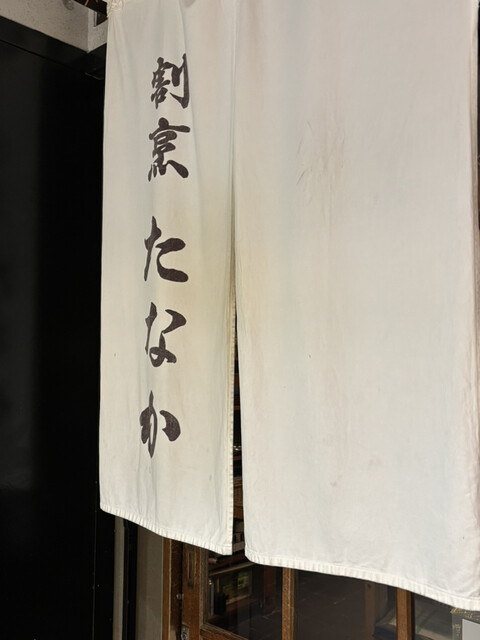 割烹 たなか